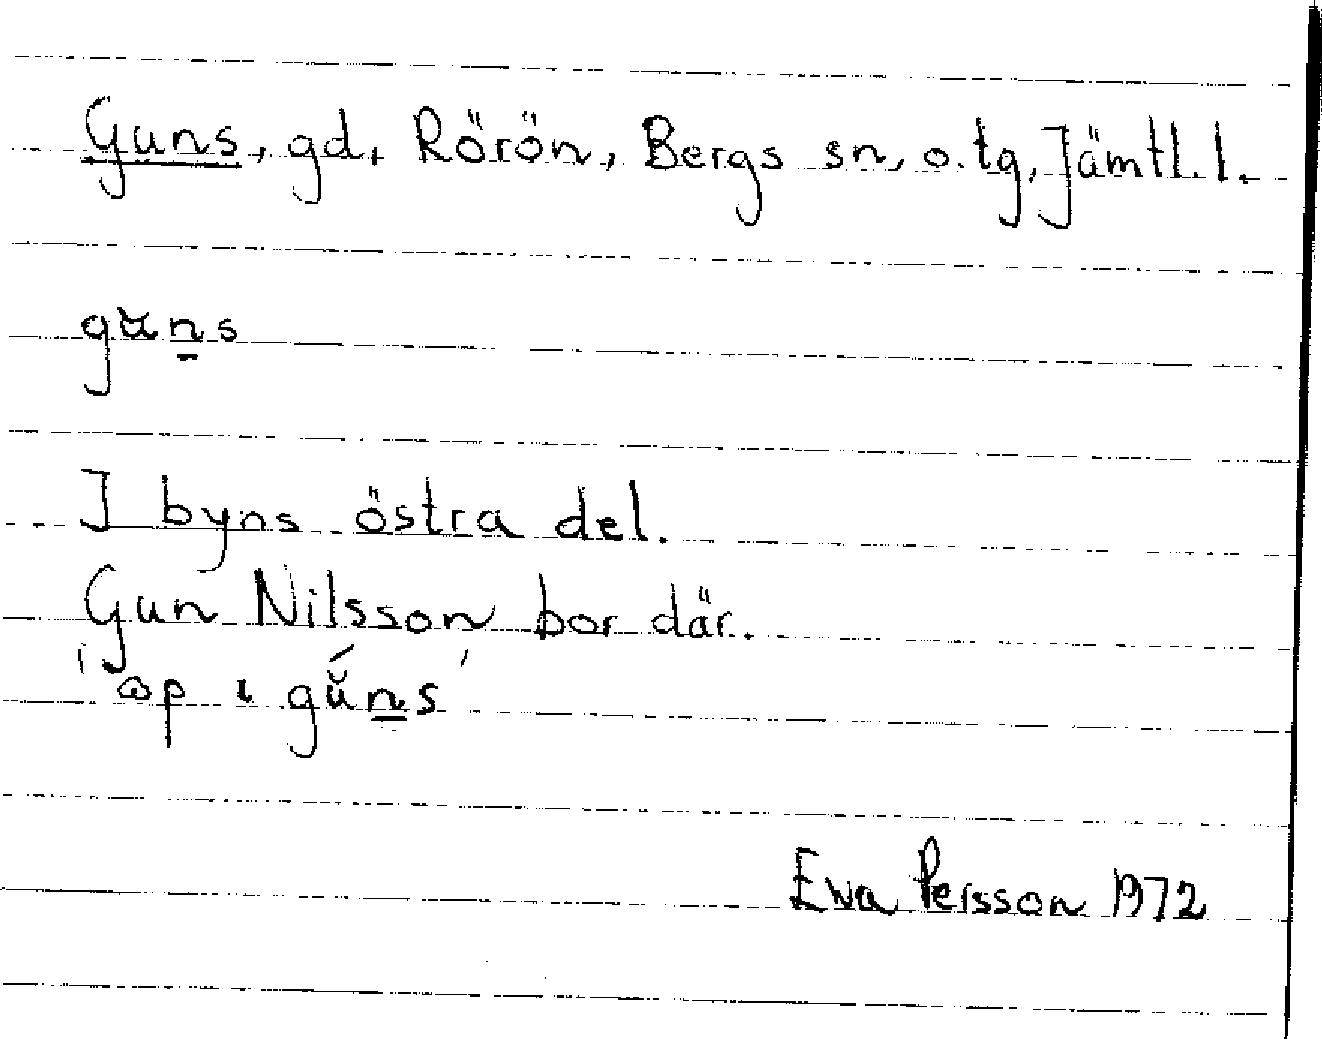 Guns, gd, Rörön, Bergs sn, o. tg, Jämtl. l.
gŭn̲s
I byns östra del.
Gun Nilsson bor där.
'ɷp ɩ gŭ́n̲s'
Ewa Persson 1972